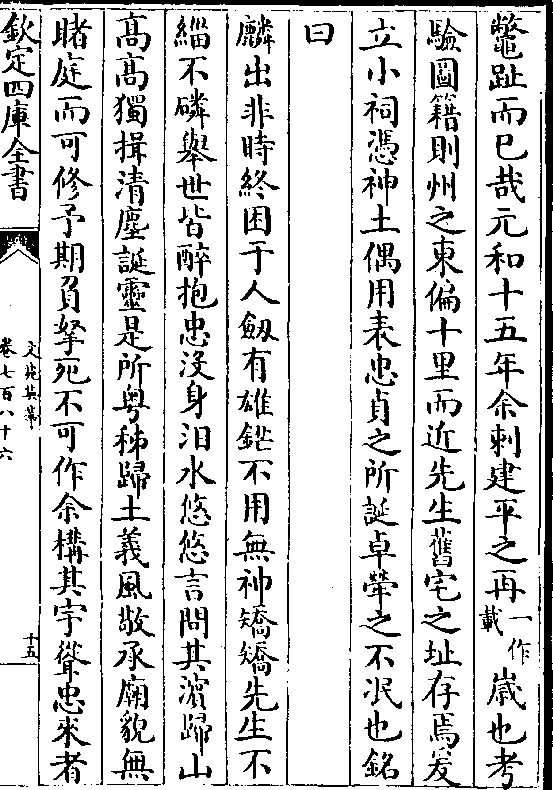 鼈趾而已哉元和十五年余刺建平之再一作載歲也考
驗圖籍則州之東偏十里而近先生舊宅之址存焉爰
立小祠憑神土偶用表忠貞之所誕卓犖之不泯也銘
曰
麟出非時終困于人劒有雄鋩不用無神矯矯先生不
緇不磷舉世皆醉抱忠沒身汨水悠悠言問其濵歸山
高高獨揖清塵誕靈是所粤秭歸土義風敬承廟貌無
睹庭而可修予期負拏死不可作余構其宇聳忠來者
欽定四庫全書
文苑英華
卷七百八十六
十五